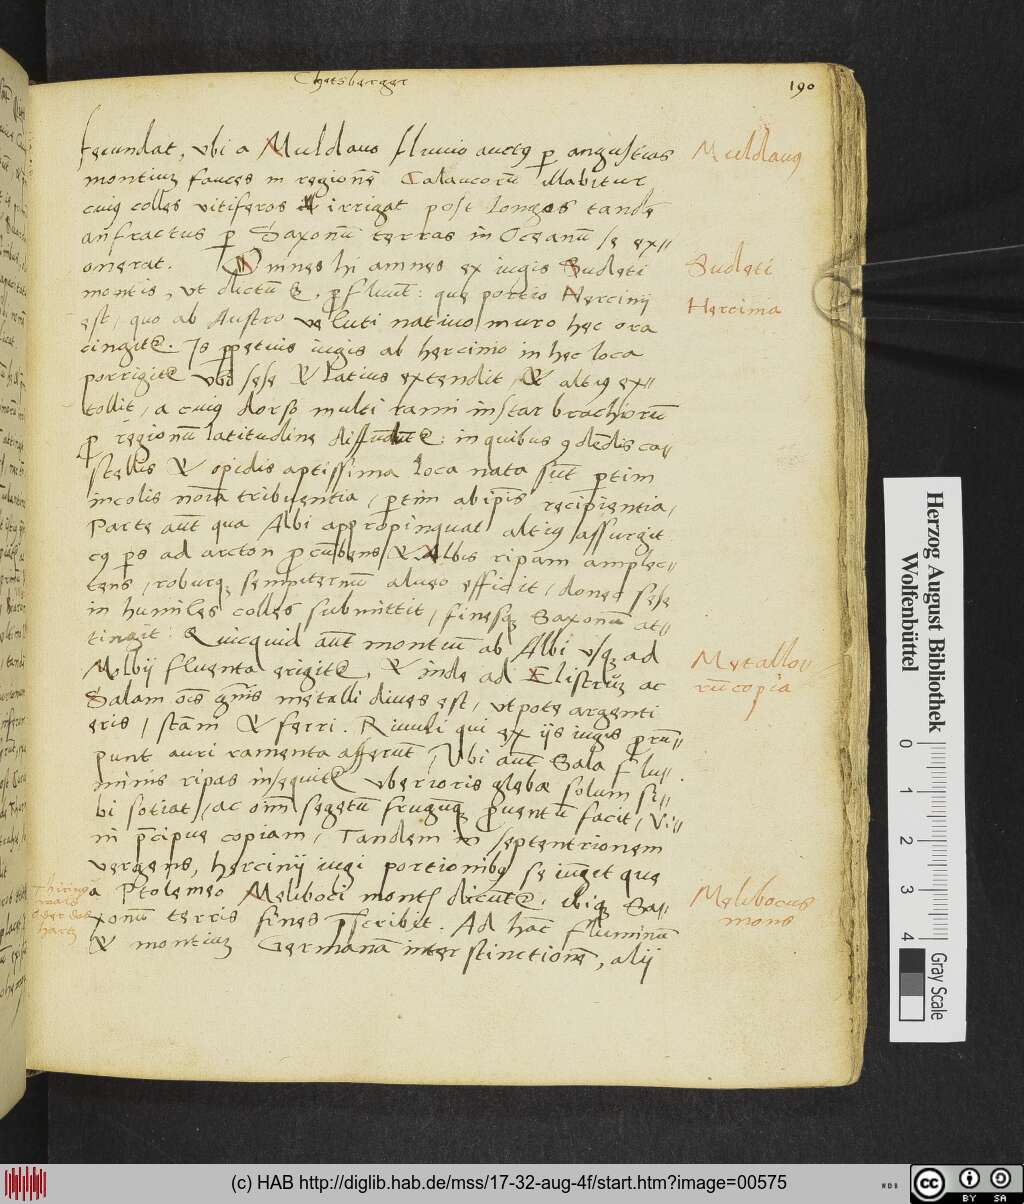 Chetsberger
190
fecundat, vbi a Muldauo fluuio auctꝯ ꝑ angustias
montiuꝫ fauces in regionē Calaucorū illabitur
cuiꝯ colles vitiferos irrigat post longos tandē
anfractus ꝑ Saxonū terras in Oceanū se ex//
onerat. Omnes hi amnes ex iugis Sudeti
montis, vt dictū ē, ꝑfluūt: que portio Hercinij
est, quo ab Austro veluti natiuo muro hec ora
cingit᷑. Is ꝑpetuis iugis ab hercinio in hec loca
porrigit᷑ vbi sese & latius extendit, & altiꝯ ex//
tollit, a cuiꝯ dorso multi rami instar brachiorū
ꝑ regionū latitudine diffundūt᷑: in quibus ꝯdendis ca//
stellis & opidis aptissima loca nata sūt ꝑtim
incolis noīa tribuentia, ꝑtim ab ip̄is recipientia,
Parte aūt qua Albi appropinquat altiꝯ assurgit
eꝯ ꝑs ad arcton ꝓcūbens & Albis ripam amplec//
tens, roburqꝫ sempiternū alueo efficit, donec sese
in humiles colles submittit, finesqꝫ Saxonum at//
tingit: Quicquid aūt montiū ab Albi vsqꝫ ad
Molbij fluenta erigit᷑, & inde ad Elistrūꝫ ac
Salam oīs gn̄is metalli diues est, vtpote argenti
eris, stām & ferri. Riuuli qui ex ijs iugis ꝓrū//
punt auri ramenta afferūt, Vbi aūt Sala flu//
minis ripas insequit᷑ vberioris glebæ solum si//
bi sotiat, ac oīm segetū frugūqꝫ ꝓuentū facit, Vi//
ni p̄cipue copiam, Tandem in septentrionem
vergens, hercinij iugi portionibꝯ se iūgit que
a Ptolemeo Meliboci montꝭ dicūt᷑, vbiqꝫ Sa//
xonū terris fines p̄scribit. Ad hāc fluminū
& montiuꝫ Germanā interstinctionē, alij
Muldauꝯ
Sudeti
Hercinia
Metallo//
rū copia
Melibocus
mons
hartz
Herzog August Bibliothek
Wolfenbüttel
0 1 2 3 4
Gray Scale
(c) HAB http://diglib.hab.de/mss/17-32-aug-4f/start.htm?image=00575
cc BY SA